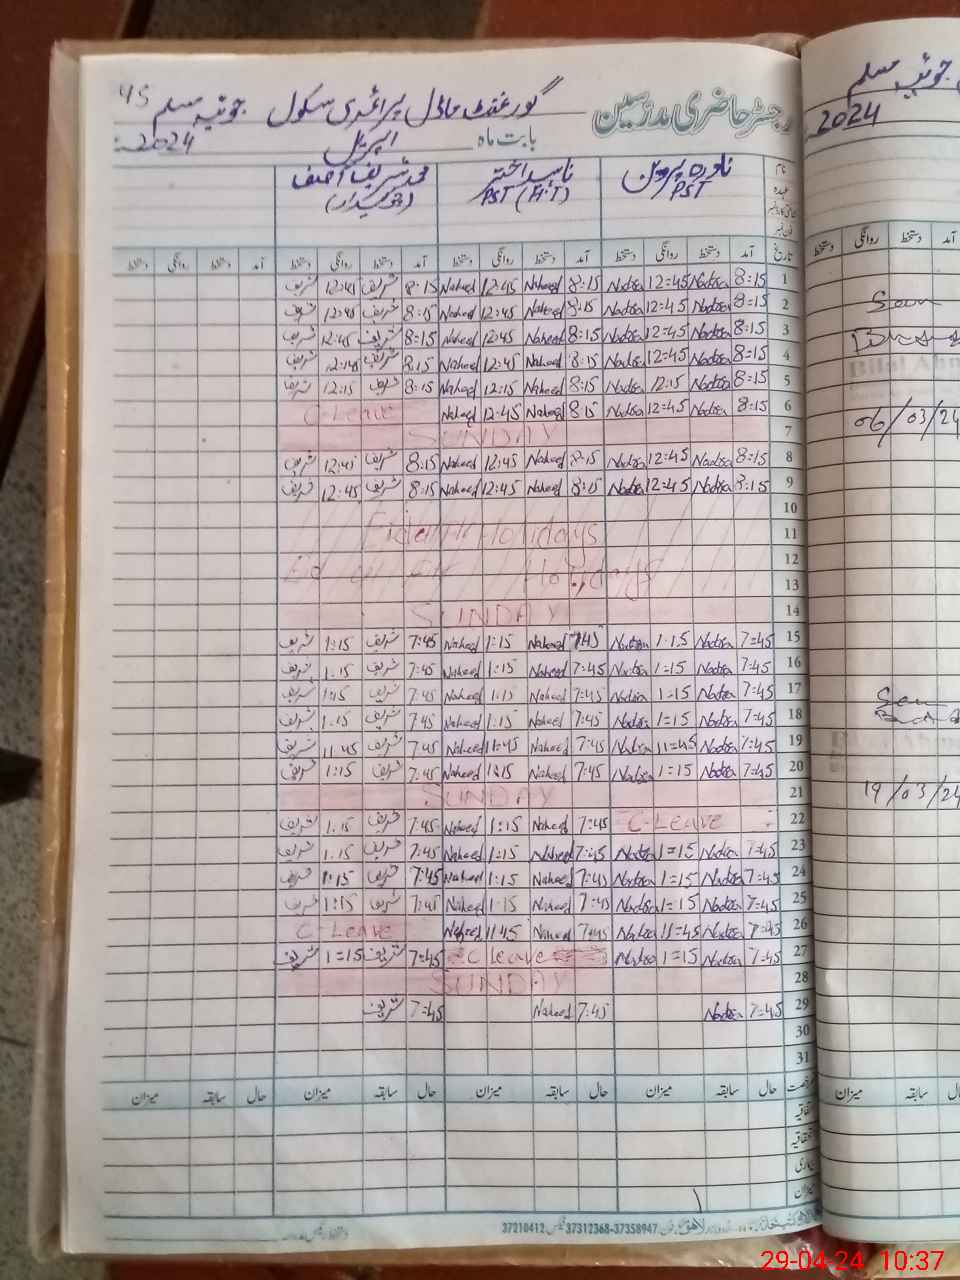 45 گورنمنٹ ماڈل پرائمری سکول جونیہ مسلم رجسٹر حاضری مدرسین
2024 اپریل بابت ماہ
نادرہ پروین ناہید اختر محمد شریف آصف نام
PST PST (H.T) (چوکیدار) عہدہ
تاریخ آمد دستخط روانگی دستخط آمد دستخط روانگی دستخط آمد دستخط روانگی دستخط آمد دستخط روانگی دستخط
1 8:15 Nadra 12=45 Nadra 8:15 Naheed 12:45 Naheed 8:15 شریف 12:45 شریف
2 8=15 Nadra 12=45 Nadra 8:15 Naheed 12:45 Naheed 8:15 شریف 12:45 شریف
3 8=15 Nadra 12=45 Nadra 8:15 Naheed 12:45 Naheed 8=15 شریف 12:45 شریف
4 8=15 Nadra 12=45 Nadra 8:15 Naheed 12:45 Naheed 8:15 شریف 12:45 شریف
5 8=15 Nadra 12:15 Nadra 8:15 Naheed 12:15 Naheed 8:15 شریف 12:15 شریف
6 8:15 Nadra 12=45 Nadra 8:15 Naheed 12:45 Naheed C-Leave
7 SUNDAY
8 8:15 Nadra 12=45 Nadra 8:15 Naheed 12:45 Naheed 8:15 شریف 12:45 شریف
9 8:15 Nadra 12=45 Nadra 8:15 Naheed 12:45 Naheed 8:15 شریف 12:45 شریف
10
11 Holidays
12
13 Holidays
14 SUNDAY
15 7=45 Nadra 1:15 Nadra 7:45 Naheed 1:15 Naheed 7:45 شریف 1:15 شریف
16 7=45 Nadra 1=15 Nadra 7:45 Naheed 1:15 Naheed 7:45 شریف 1:15 شریف
17 7=45 Nadra 1=15 Nadra 7:45 Naheed 1:15 Naheed 7:45 شریف 1:15 شریف
18 7=45 Nadra 1=15 Nadra 7:45 Naheed 1:15 Naheed 7:45 شریف 1:15 شریف
19 7=45 Nadra 11=45 Nadra 7:45 Naheed 11:45 Naheed 7:45 شریف 11:45 شریف
20 7=45 Nadra 1=15 Nadra 7:45 Naheed 1:15 Naheed 7:45 شریف 1:15 شریف
21 SUNDAY
22 C-Leave 7:45 Naheed 1:15 Naheed 7:45 شریف 1:15 شریف
23 7=45 Nadra 1=15 Nadra 7:45 Naheed 1:15 Naheed 7:45 شریف 1:15 شریف
24 7=45 Nadra 1=15 Nadra 7:45 Naheed 1:15 Naheed 7:45 شریف 1:15 شریف
25 7=45 Nadra 1=15 Nadra 7:45 Naheed 1:15 Naheed 7:45 شریف 1:15 شریف
26 7=45 Nadra 11=45 Nadra 7:45 Naheed 11:45 Naheed C-Leave
27 7=45 Nadra 1=15 Nadra C Leave 7=45 شریف 1=15 شریف
28 SUNDAY
29 7=45 Nadra 7:45 Naheed 7=45 شریف
30
31
حال سابقہ میزان حال سابقہ میزان حال سابقہ میزان حال سابقہ میزان
37210412 فیکس 37312368-37358947 لاہور
جونیہ مسلم
2024
آمد دستخط روانگی دستخط
Bilal Ahm
06/03/24
19/03/24
میزان سابقہ
29-04-24 10:37